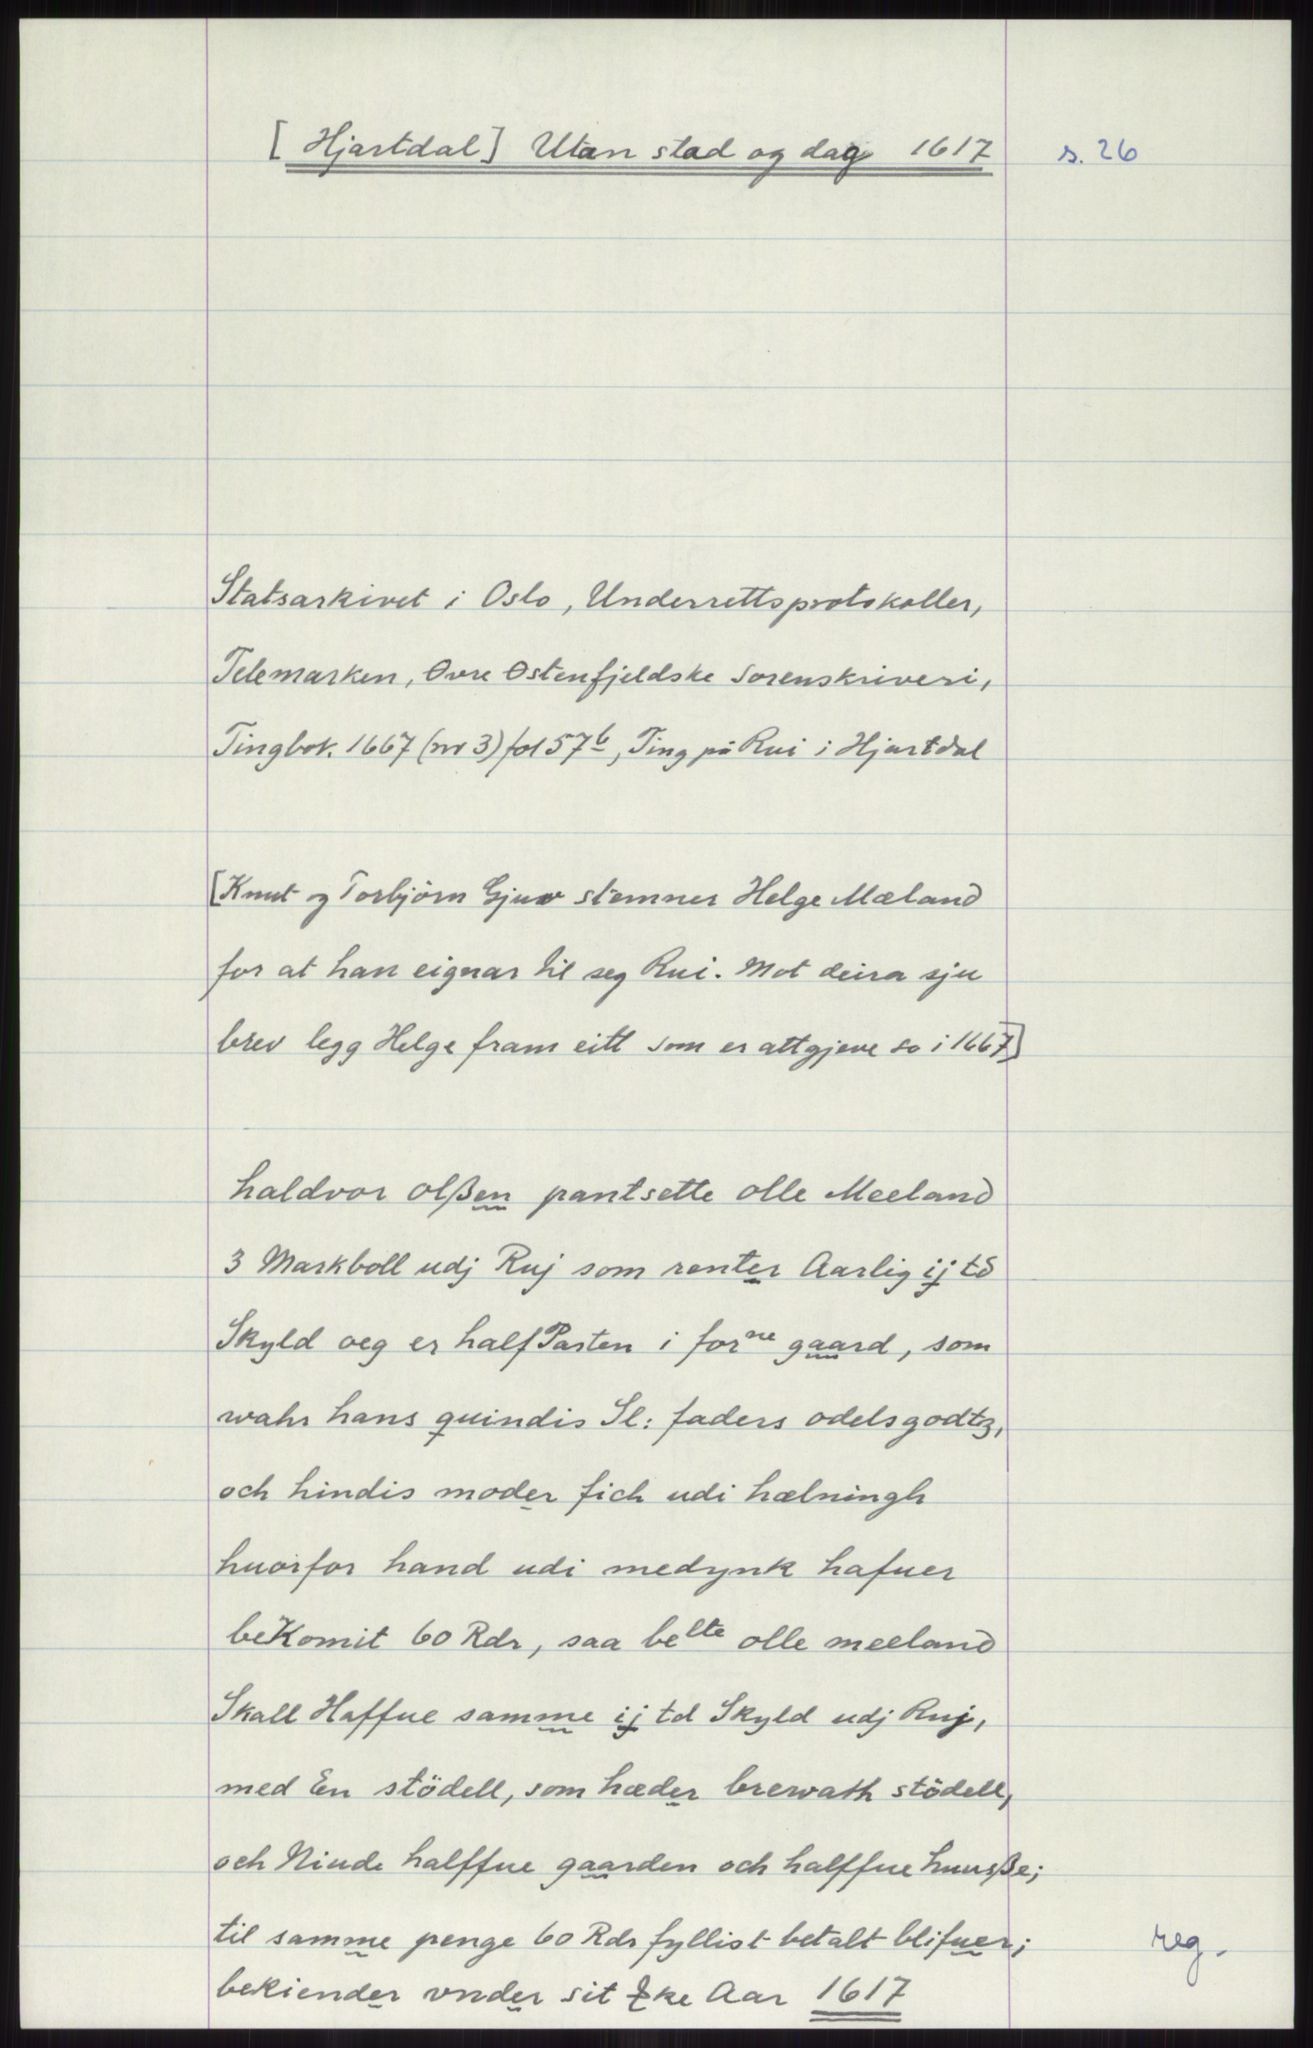 [Hjartdal] Utan stad og dag 1617 s. 26
Statsarkivet i Oslo, Underrettsprotokoller,
Telemarken, Øvre Østenfjeldske Sorenskriveri,
Tingbok 1667 (nr 3) fol 57b, Ting på Rui i Hjartdal
[Knut og Torbjörn Gjuv stemner Helge Mæland
for at han eignar til seg Rui. Mot deira sju
brev legg Helge fram eitt som er attgjeve so i 1667]
haldvor olßen pantsette olle Meeland
3 Markboll udj Ruj som renter Aarlig ij td
Skyld oeg er half Parten i forne gaard, som
wahr hans quindis Sl: faders odelsgodtz,
och hindis moder fich udi hælningh
huorfor hand udi medynk hafuer
beKomit 60 Rdr, saa belte olle meeland
Skall Haffue samme ij td Skyld udj Ruj,
med En stödell, som hæder brewath stödell,
och Niude halffue gaarden och halffue huusße;
til samme penge 60 Rdr fyllist betalt blifuer;
bekiender vnder sit ke Aar 1617
reg.